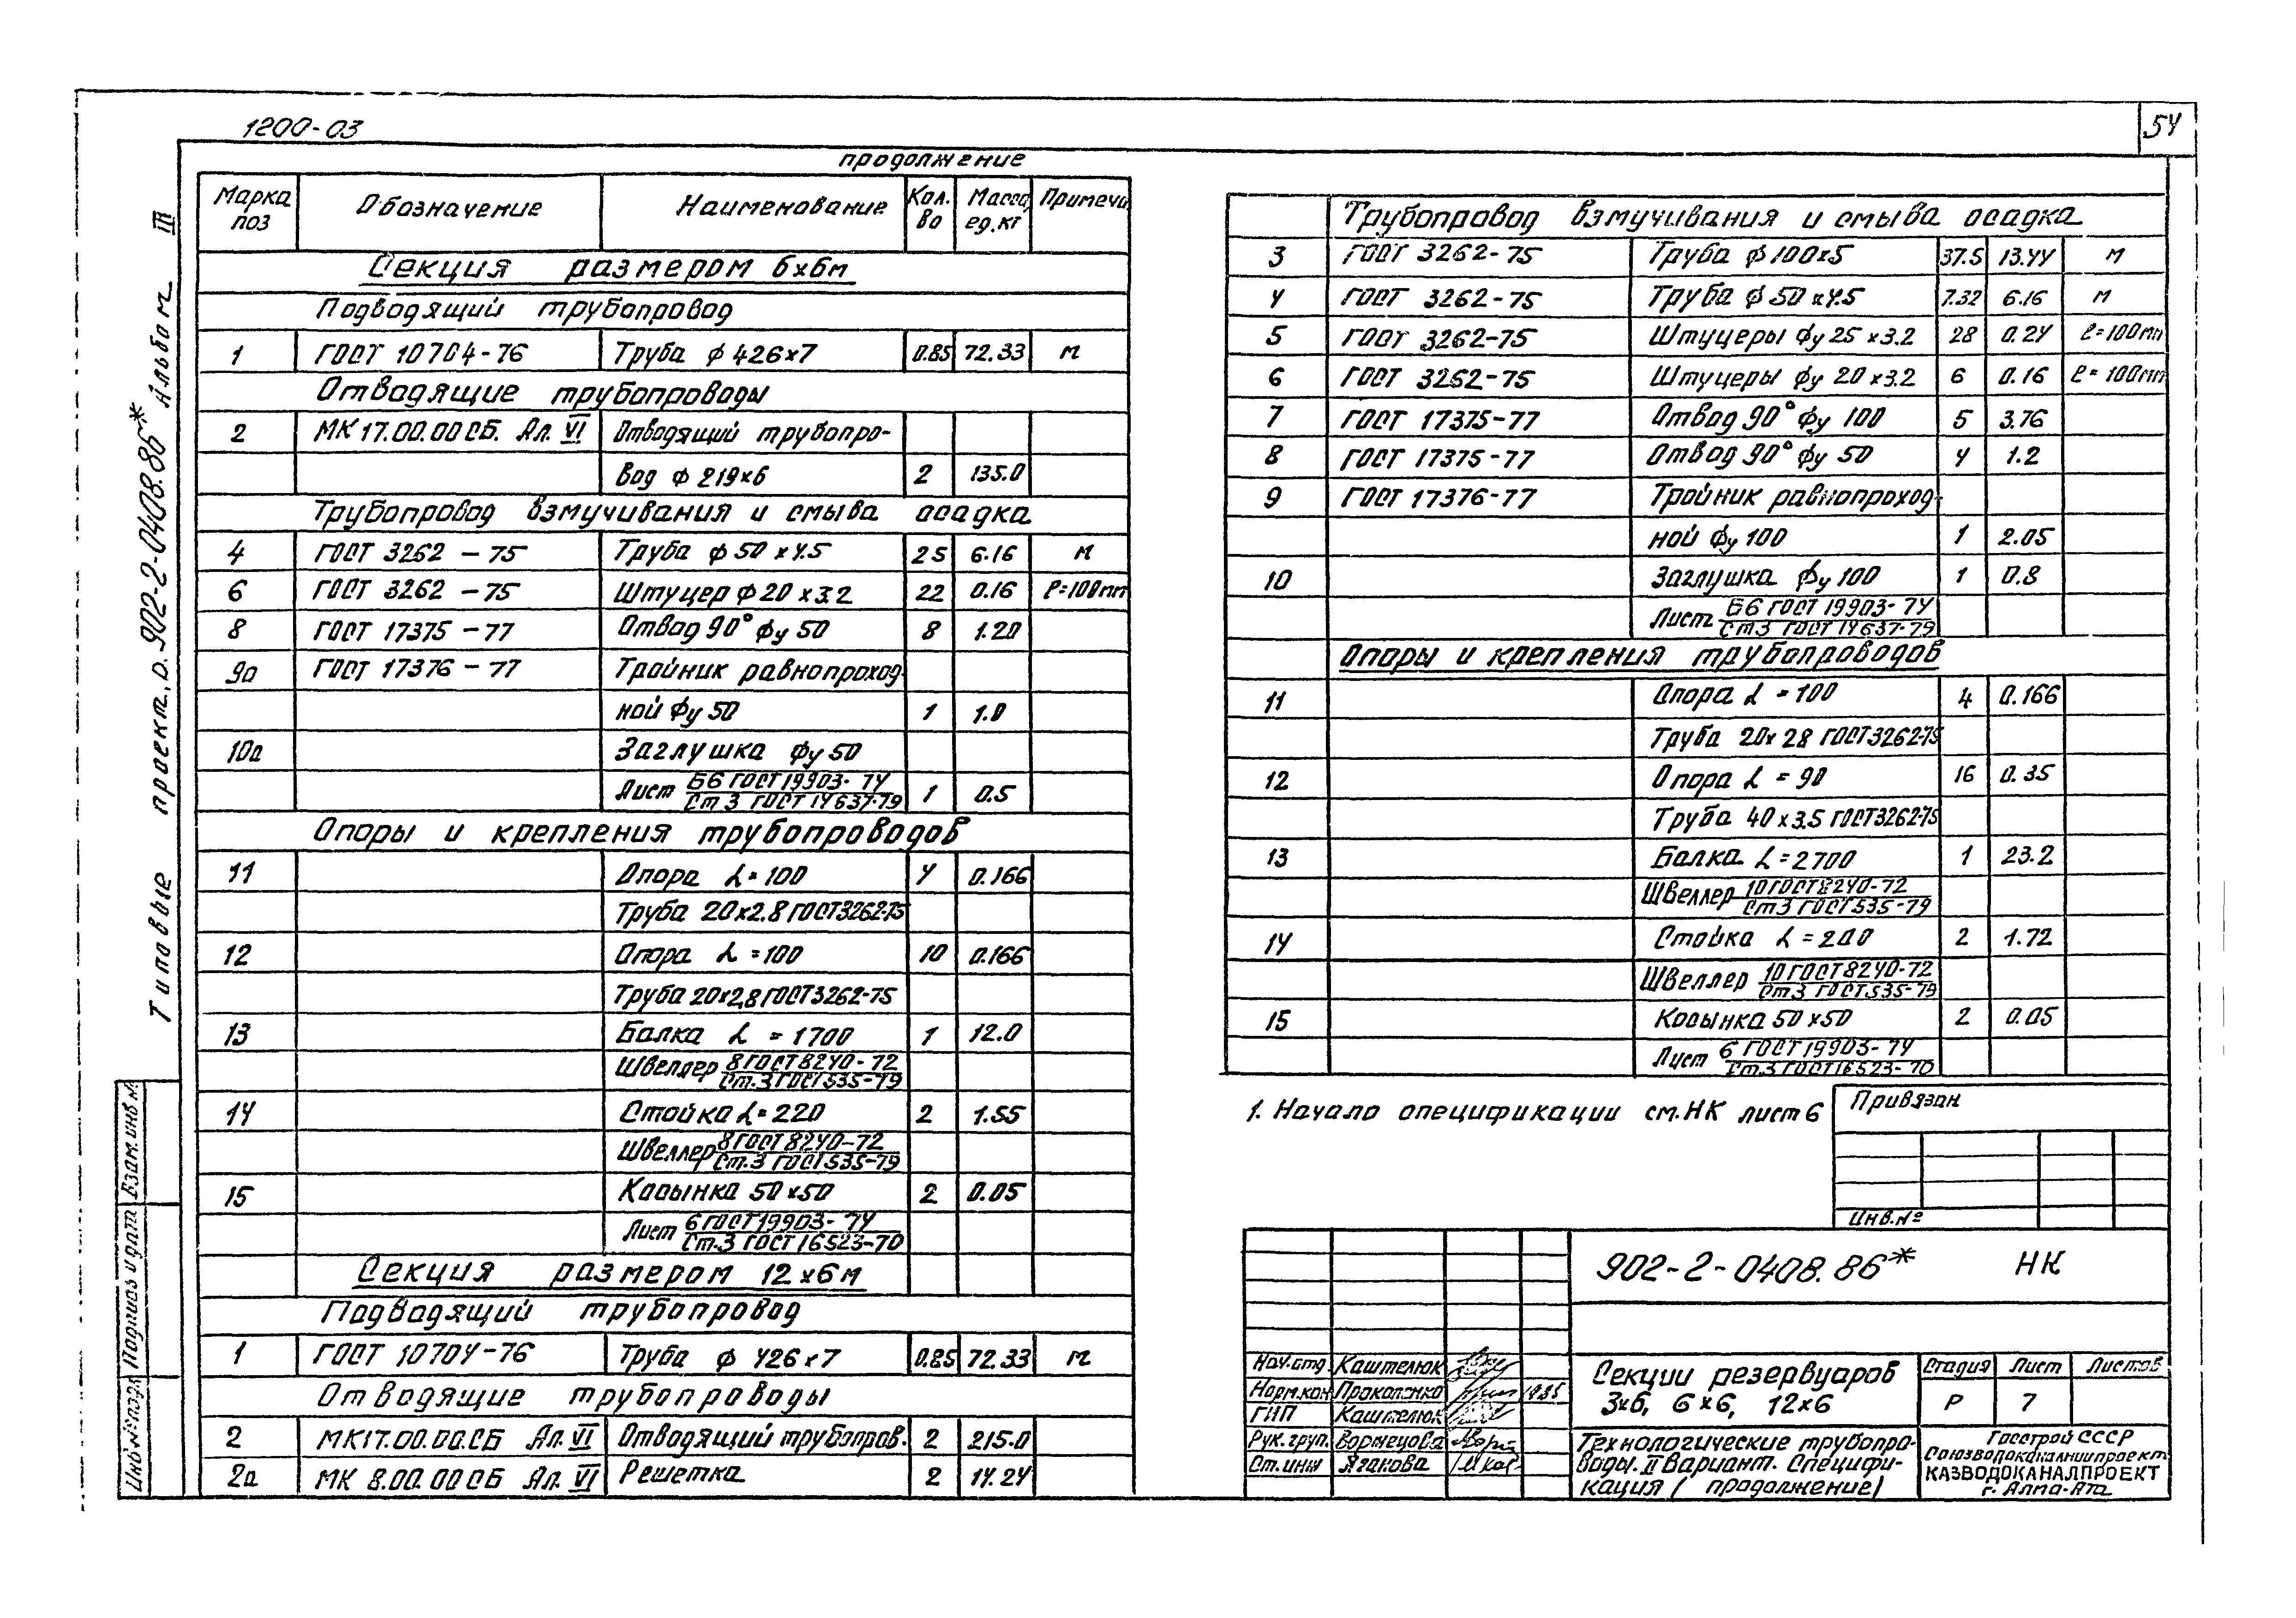 1200-03
54
продолжение
Марка поз | Обозначение | Наименование | Кол. во | Масса ед.кг | Примеча
Секция размером 6х6м
Подводящий трубопровод
1 | ГОСТ 10704-76 | Труба ф 426х7 | 0.85 | 72.33 | м
Отводящие трубопроводы
2 | МК17.00.00СБ. Ал. VI | Отводящий трубопро-
вод ф 219х6 | 2 | 135.0
Трубопровод взмучивания и смыва осадка
4 | ГОСТ 3262 – 75 | Труба ф 50 х 4.5 | 25 | 6.16 | м
6 | ГОСТ 3262 – 75 | Штуцер ф 20 х 3.2 | 22 | 0.16 | ℓ=100мм
8 | ГОСТ 17375 – 77 | Отвод 90° фу 50 | 8 | 1.20
9а | ГОСТ 17376 – 77 | Тройник равнопроход-
ной фу 50 | 1 | 1.0
10а | Заглушка фу 50
Лист Б6 ГОСТ 19903-74 / Ст3 ГОСТ 14637-79 | 1 | 0.5
Опоры и крепления трубопроводов
11 | Опора L=100 | 4 | 0.166
Труба 20х2.8 ГОСТ3262-75
12 | Опора L=100 | 10 | 0.166
Труба 20х2,8 ГОСТ3262-75
13 | Балка L = 1700 | 1 | 12.0
Швеллер 8 ГОСТ 8240-72 / Ст.3 ГОСТ 535-79
14 | Стойка L=220 | 2 | 1.55
Швеллер 8 ГОСТ 8240-72 / Ст.3 ГОСТ 535-79
15 | Косынка 50 х 50 | 2 | 0.05
Лист 6 ГОСТ 19903-74 / Ст.3 ГОСТ 16523-70
Секция размером 12х6м
Подводящий трубопровод
1 | ГОСТ 10704-76 | Труба ф 426х7 | 0.85 | 72.33 | м
Отводящие трубопроводы
2 | МК17.00.00.СБ Ал. VI | Отводящий трубопров. | 2 | 215.0
2а | МК 8.00.00СБ Ал. VI | Решетка | 2 | 14.24
Трубопровод взмучивания и смыва осадка
3 | ГОСТ 3262-75 | Труба ф 100х5 | 37.5 | 13.44 | м
4 | ГОСТ 3262-75 | Труба ф 50 х 4.5 | 7.32 | 6.16 | м
5 | ГОСТ 3262-75 | Штуцеры фу 25 х 3.2 | 28 | 0.24 | ℓ=100мм
6 | ГОСТ 3262-75 | Штуцеры фу 20 х 3.2 | 6 | 0.16 | ℓ= 100мм
7 | ГОСТ 17375-77 | Отвод 90° фу 100 | 5 | 3.76
8 | ГОСТ 17375-77 | Отвод 90° фу 50 | 4 | 1.2
9 | ГОСТ 17376-77 | Тройник равнопроход-
ной фу 100 | 1 | 2.05
10 | Заглушка фу 100 | 1 | 0.8
Лист Б6 ГОСТ 19903-74 / Ст3 ГОСТ 14637-79
Опоры и крепления трубопроводов
11 | Опора L = 100 | 4 | 0.166
Труба 20х 28 ГОСТ3262-75
12 | Опора L = 90 | 16 | 0.35
Труба 40 х 3.5 ГОСТ3262-75
13 | Балка L = 2700 | 1 | 23.2
Швеллер 10 ГОСТ 8240-72 / Ст3 ГОСТ 535-79
14 | Стойка L = 200 | 2 | 1.72
Швеллер 10 ГОСТ 8240-72 / Ст3 ГОСТ 535-79
15 | Косынка 50 х 50 | 2 | 0.05
Лист 6 ГОСТ 19903-74 / Ст.3 ГОСТ 16523-70
1. Начало спецификации см. НК лист 6
Привязан
Инв.№
902-2-0408.86* НК
Нач.отд. Каштелюк
Норм.кон Прокопенко 1985
ГИП Каштелюк
Рук.груп.
Ст.инж
Секции резервуаров
3х6, 6х6, 12х6
Стадия | Лист | Листов
Р | 7
Технологические трубопро-
воды. II Вариант. Специфи-
кация ( продолжение)
Госстрой СССР
Союзводоканалниипроект
КАЗВОДОКАНАЛПРОЕКТ
г. Алма-Ата
Типовые проект. р. 902-2-0408.86* Альбом III
Взам.инв.№
Подпись и дата
Инв.№подл